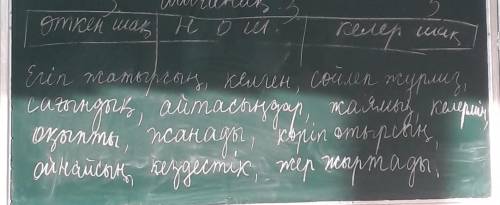 өткен шақ н о ш. келер шақ
Егіп жатырсың, келген, сөйлеп жүрміз,
сағындық, айтасыңдар, жаямын, келермін,
оқыпты, жанады, көріп отырсың,
ойнайсың, кездестік, жер жыртады.